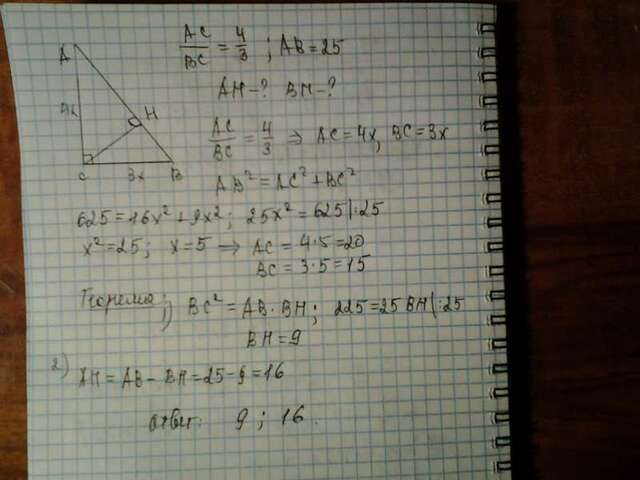 AC/BC = 4/3 ; AB = 25
A
AH - ? BH - ?
4x
H
AC/BC = 4/3 ⇒ AC = 4x, BC = 3x
C 3x B
AB² = AC² + BC²
625 = 16x² + 9x² ; 25x² = 625 |:25
x² = 25 ; x = 5 → AC = 4·5 = 20
BC = 3·5 = 15
Теорема ;) BC² = AB · BH ; 225 = 25 BH |:25
BH = 9
2) AH = AB - BH = 25 - 9 = 16
ответ: 9 ; 16.